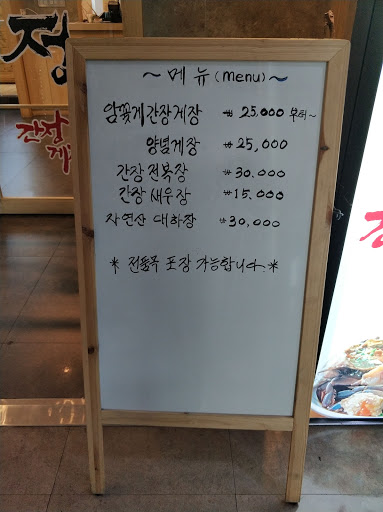 ~ 메 뉴 (menu) ~
암꽃게간장게장 ₩ 25,000 부터~
양념게장 ₩ 25,000
간장전복장 ₩ 30,000
간장새우장 ₩ 15,000
자연산 대하장 ₩ 30,000
* 전품목 포장 가능합니다. *
정
간장
게